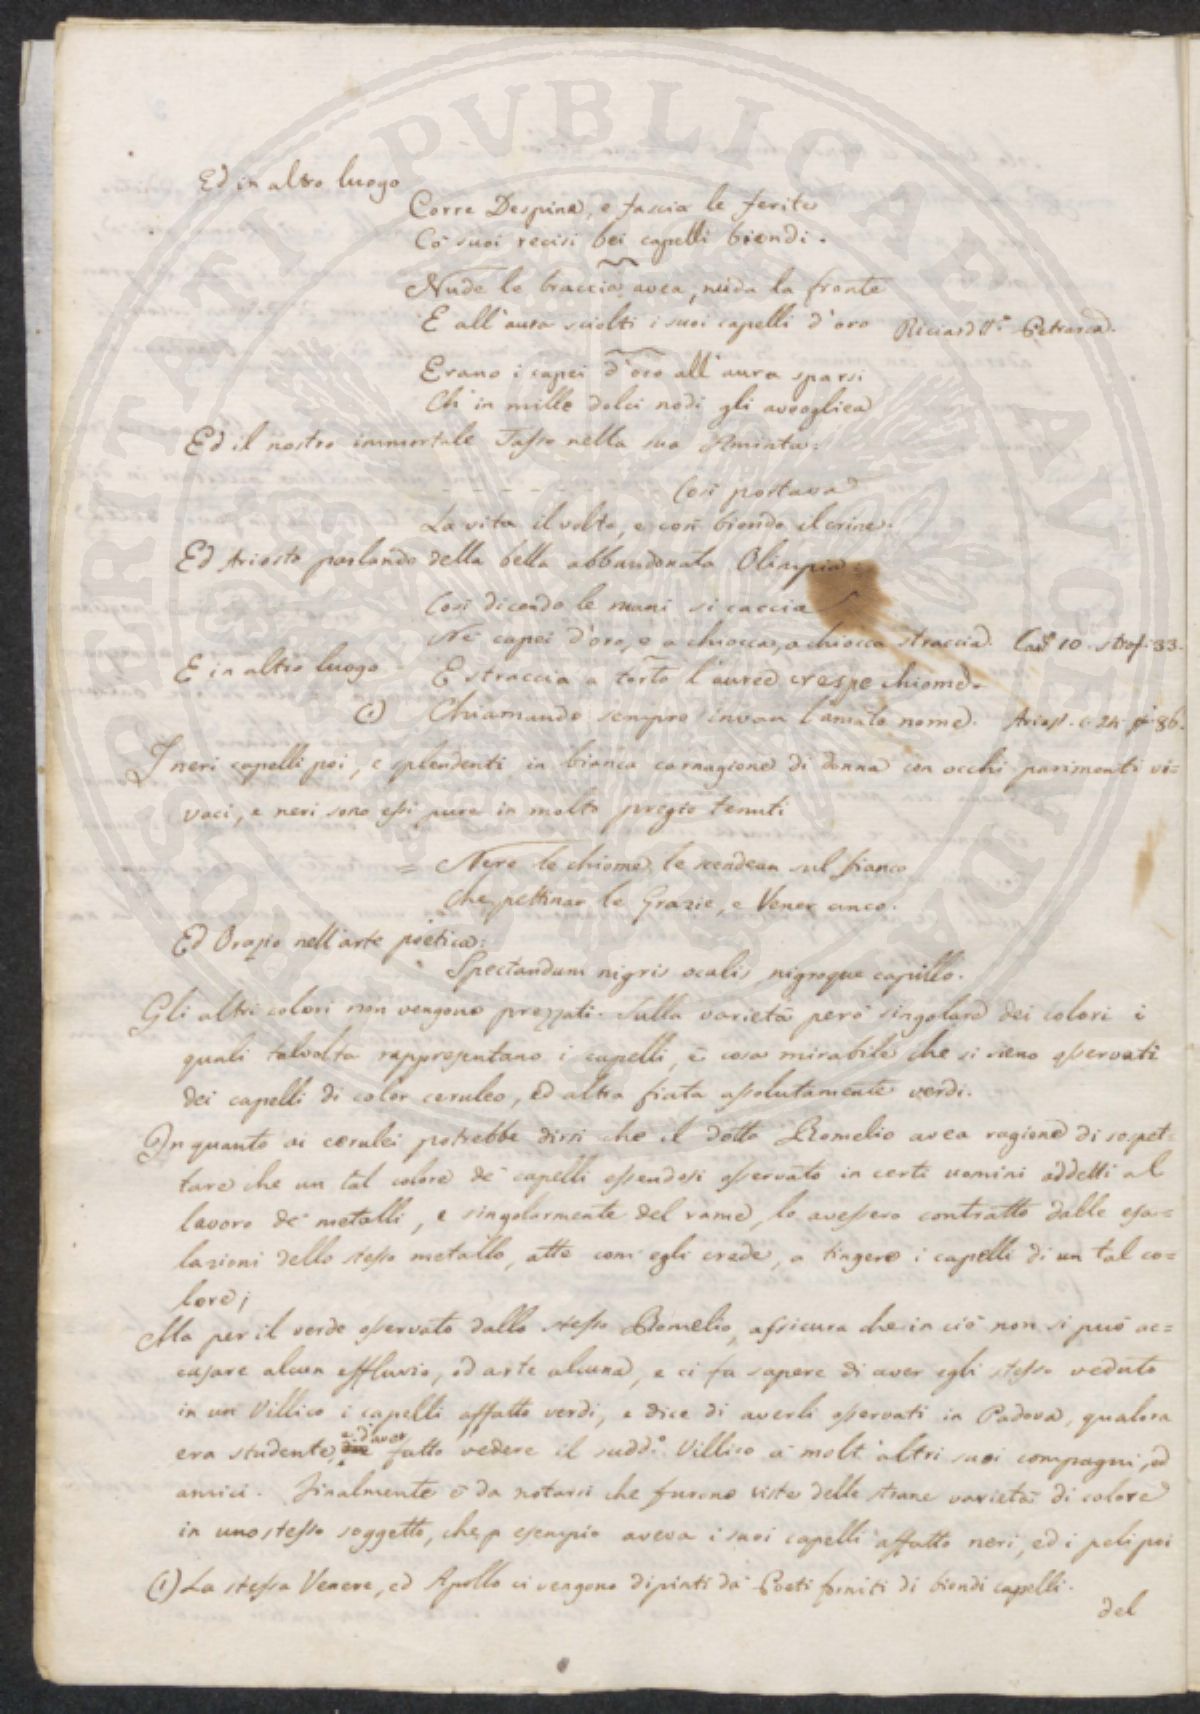 Ed in altro luogo
Corre Despina, e fascia le ferite
Co' suoi recisi bei capelli biondi.
Nude le braccia avea, nuda la fronte
E all'aura sciolti i suoi capelli d'oro Ricciard.º Petrarca.
Erano i capei d'oro all'aura sparsi
Ch' in mille dolci nodi gli avvogliea
Ed il nostro immortale Tasso nella sua Aminta:
- - - - - - Così portava
La vita il volto, e così biondo il crine.
Ed Ariosto parlando della bella abbandonata Olimpia:
Così dicendo le mani si caccia
Ne' capei d'oro, e a chiocca, a chiocca straccia. Cant. 10. strof. 33.
E in altro luogo E straccia a torto l'auree crespe chiome.
(1) Chiamando sempre invan l'amato nome. Ariost. c. 24. st. 86.
I neri capelli poi, e splendenti in bianca carnagione di donna con occhi parimenti vi=
vaci, e neri sono essi pure in molto pregio tenuti
= Nere le chiome le scendean sul fianco
Che pettinar le Grazie, e Vener anco.
Ed Orazio nell'arte poetica:
Spectandum nigris oculis, nigroque capillo.
Gli altri colori non vengono prezzati. Sulla varietà però singolare dei colori i
quali talvolta rappresentano i capelli, è cosa mirabile che si sieno osservati
dei capelli di color ceruleo, ed altra fiata assolutamente verdi.
In quanto ai cerulei potrebbe dirsi che il dotto Bomelio avea ragione di sospet=
tare che un tal colore de' capelli essendosi osservato in certi uomini addetti al
lavoro de' metalli, e singolarmente del rame, lo avessero contratto dalle esa=
lazioni dello stesso metallo, atte com' egli crede, a tingere i capelli di un tal co=
lore;
Ma per il verde osservato dallo stesso Bomelio, assicura che in ciò non si può ac=
cusare alcun effluvio, od arte alcuna, e ci fa sapere di aver egli stesso veduto
in un Villico i capelli affatto verdi, e dice di averli osservati in Padova, qualora
era studente, e d'aver fatto vedere il sudd.º Villico a molt'altri suoi compagni, ed
amici. Finalmente è da notarsi che furono viste delle strane varietà di colore
in uno stesso soggetto, che p esempio aveva i suoi capelli affatto neri, ed i peli poi
(1) La stessa Venere, ed Apollo ci vengono dipinti da' Poeti forniti di biondi capelli.
del